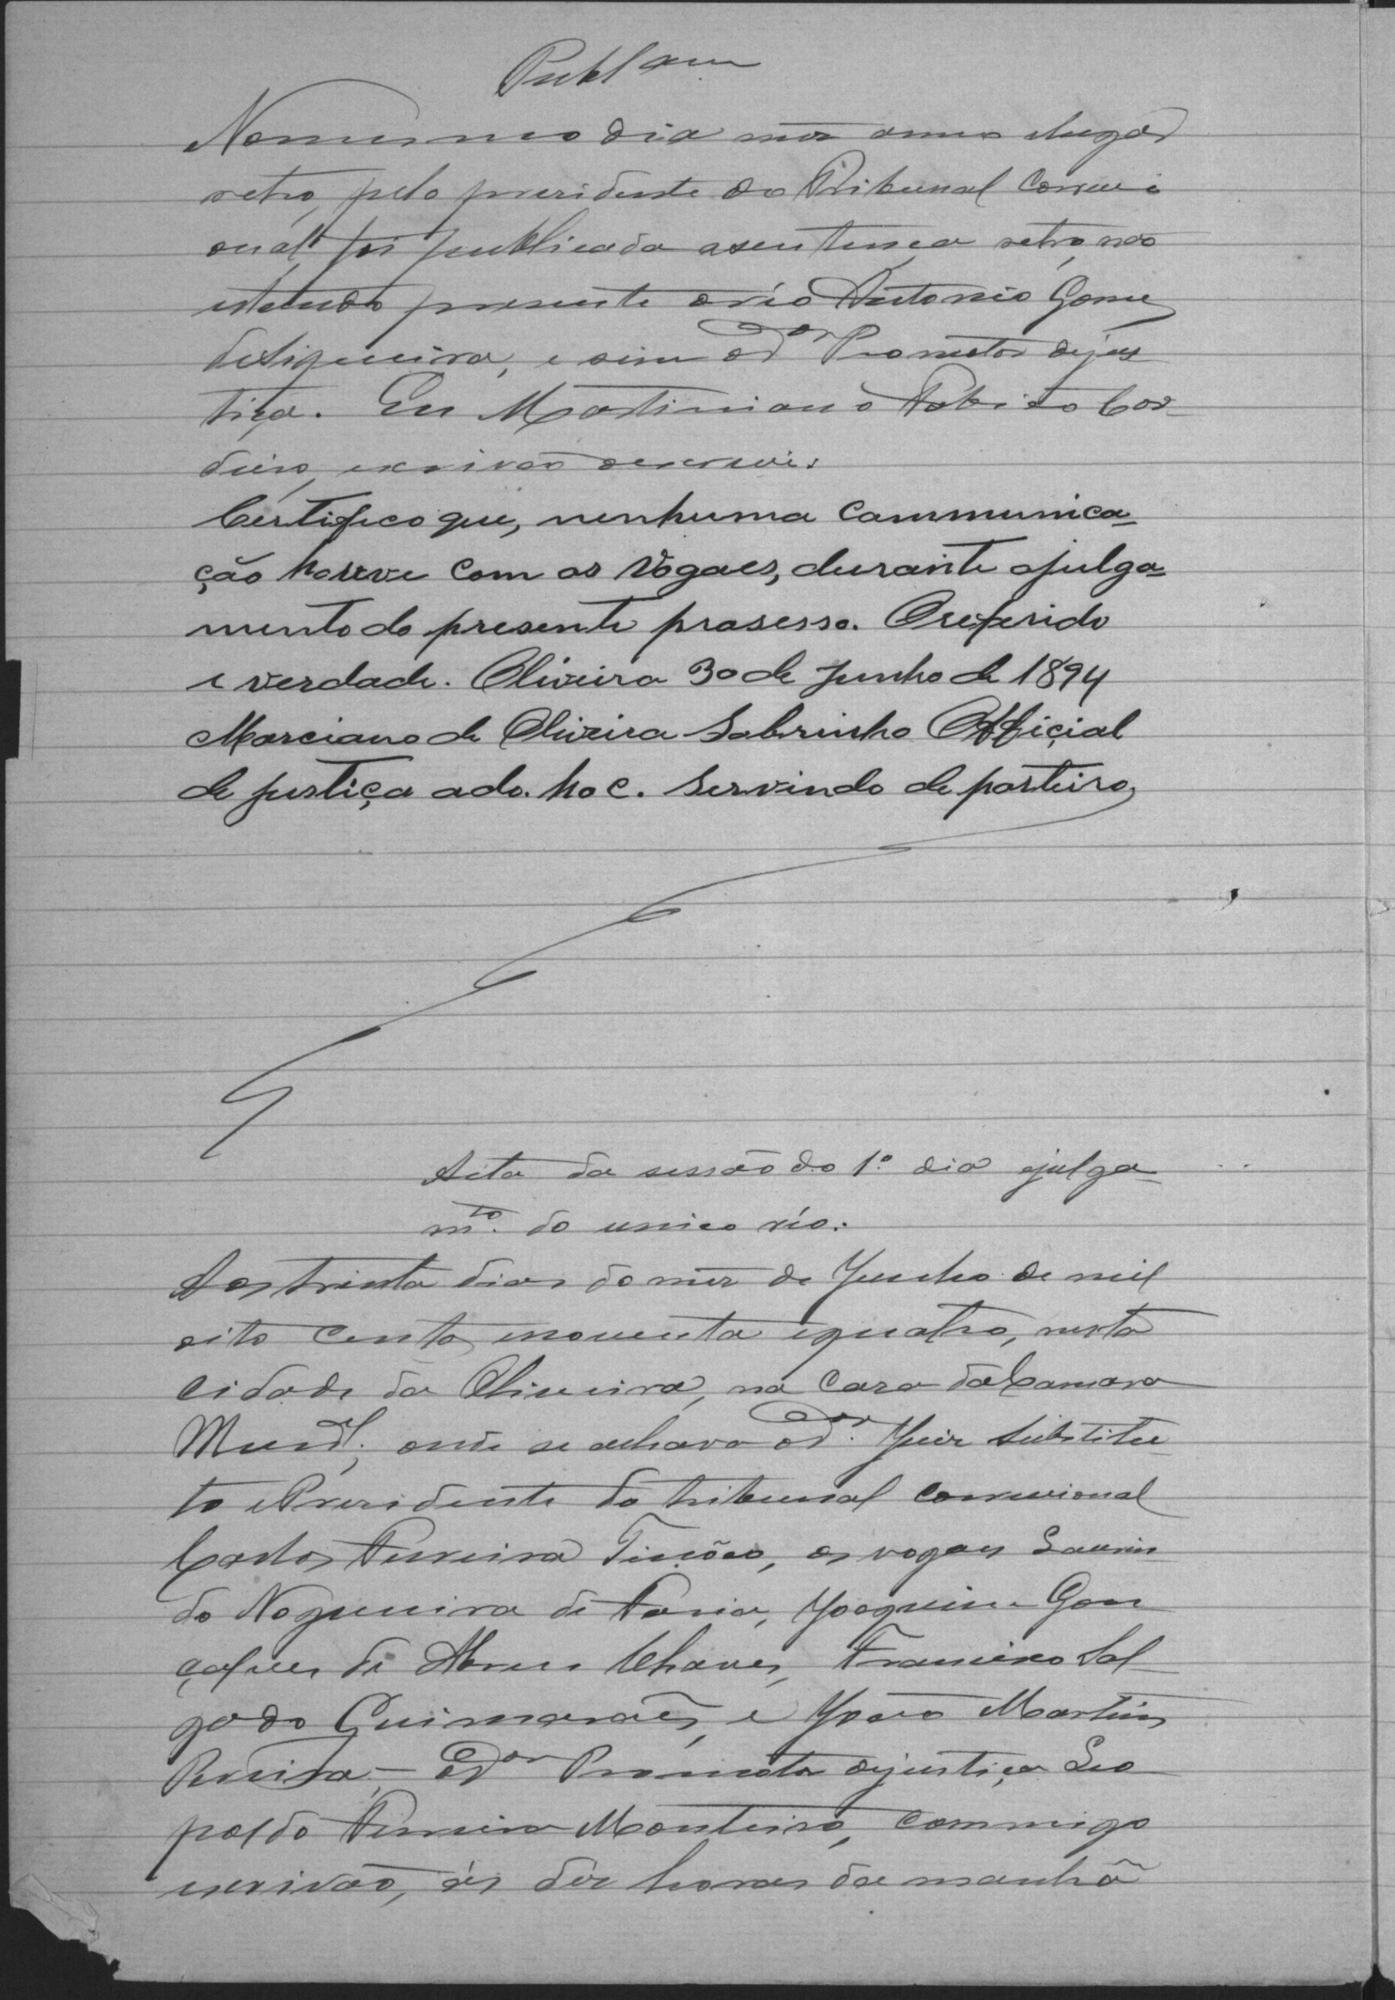 Publ.am
No mesmo dia mez anno e lugar
retro, pelo presidente do Tribunal Correci
onal foi publicada a sentença retro, nao
estando presente o réo Antonio Gomes
de Siqueira, e sim o Dor Promotor de jus
tiça. Eu Martiniano Cor-
deiro, escrivão o escrevi.
Certifico que, nenhuma communica=
ção houve com os vogaes, durante o julga=
mento do presente prosesso. O referido
e verdade. Oliveira 30 de Junho de 1894
Marciano de Oliveira Sobrinho Official
de justiça ado. hoc. servindo de porteiro,
Acta da sessão do 1.º dia e julga-
m.to do unico réo.
Aos trinta dias do mez de Junho de mil
oito centos e noventa e quatro, nesta
cidade da Oliveira, na casa da Camara
Munal; onde se achava o Dor. Juiz Substitu-
to e Presidente do tribunal correcional
Carlos Ferreira Tinôco, os vogaes Laurin
do Nogueira de Faria, Joaquim Gon
çalves de Abreu Chaves, Francisco Sal-
gado Guimarães, e João Martins
Pereira - o Dor Promotor de justiça Leo
poldo Ferreira Monteiro, commigo
escrivão, ás dez horas da manhã